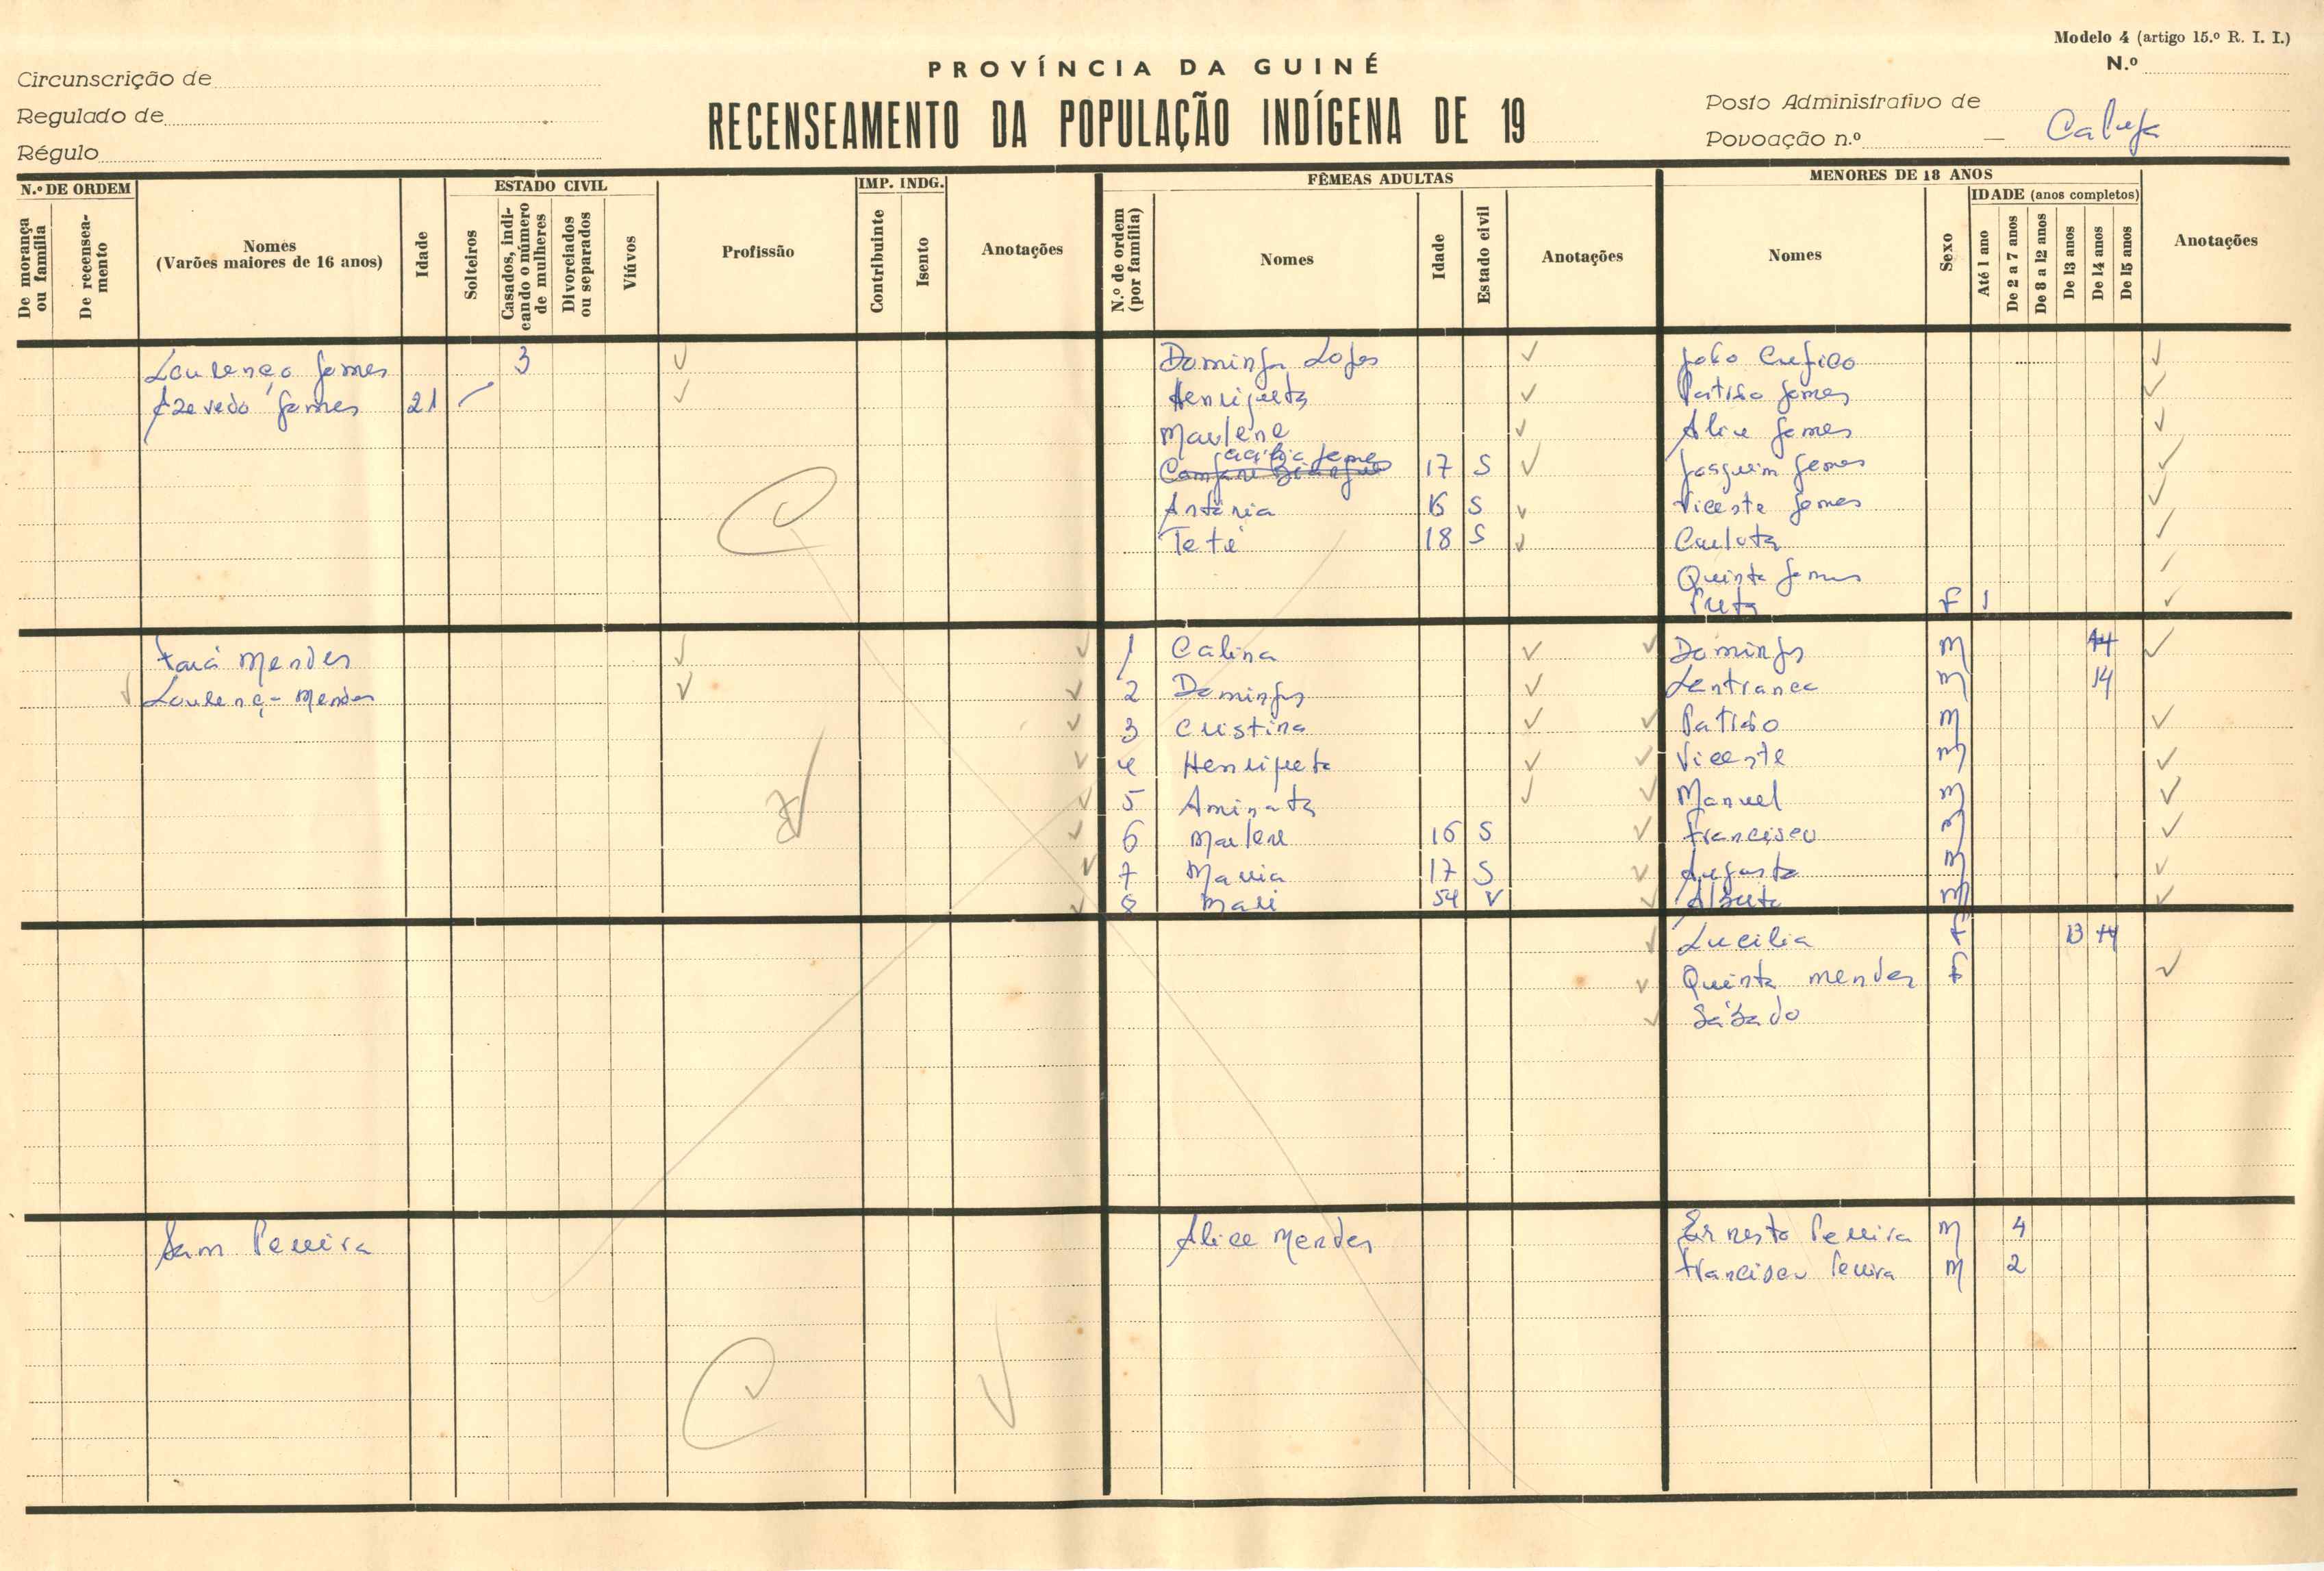 Modelo 4 (artigo 15.º R. I. I.)
N.º
PROVÍNCIA DA GUINÉ
RECENSEAMENTO DA POPULAÇÃO INDÍGENA DE 19
Circunscrição de
Regulado de
Régulo
Posto Administrativo de
Povoação n.º —
N.º DE ORDEM
De morança ou família
De recensea-mento
Nomes
(Varões maiores de 16 anos)
Idade
ESTADO CIVIL
Solteiros
Casados, indi-cando o número de mulheres
Divorciados ou separados
Viúvos
Profissão
IMP. INDG.
Contribuinte
Isento
Anotações
FÊMEAS ADULTAS
N.º de ordem (por família)
Nomes
Idade
Estado civil
Anotações
MENORES DE 18 ANOS
Nomes
Sexo
IDADE (anos completos)
Até 1 ano
De 2 a 7 anos
De 8 a 12 anos
De 13 anos
De 14 anos
De 15 anos
Anotações
Lourenço Gomes 3
Azevedo Gomes 21
Dominga Lopes
Henriqueta
Marlene
17 S
Antónia S
Teté 18 S
João
Patrício Gomes
Alice Gomes
Joaquim Gomes
Vicente Gomes
Carlota
Quinta Gomes
Preta F 1
Mendes
Lourenço Mendes
1 Calina
2 Domingas
3 Cristina
4 Henriqueta
5 Aminata
6 Marlene 16 S
7 Maria 17 S
8 54 V
Domingos M 14
M 14
Patrício M
Vicente M
Manuel M
Francisco M
Augusto M
Alberto M
Lucilia F 13 14
Quinta Mendes F
Sábado
Sam Pereira
Alice Mendes
Ernesto Pereira M 4
Francisco Pereira M 2